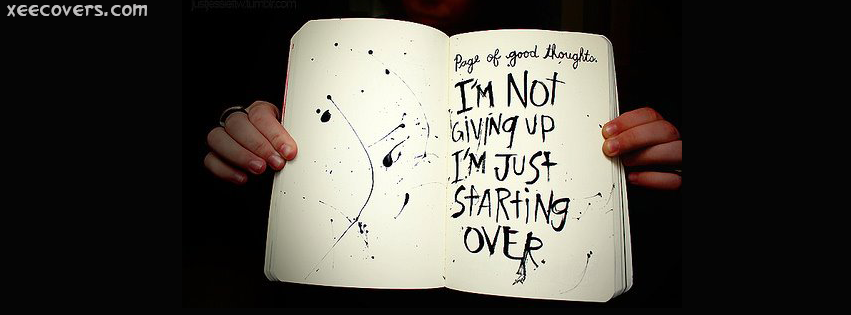 xeecovers.com
Page of good thoughts.
I'M NOT
GIVING UP
I'M JUST
STARTING
OVER.